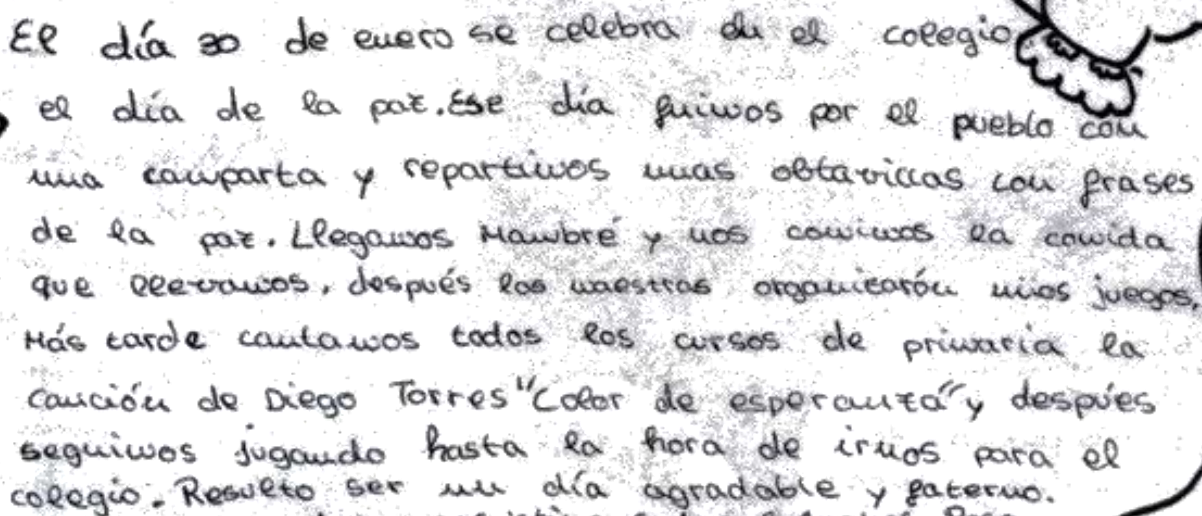 El día 30 de enero se celebra en el colegio
el día de la paz. Ese día fuimos por el pueblo con
una camparta y repartimos unas obtavicas con frases
de la paz. Llegamos Mambré y nos comimos la comida
que llevamos, después las maestras organizarón unos juegos,
Más tarde cantamos todos los cursos de primaria la
canción de Diego Torres "Color de esperanza" y despúes
seguimos jugando hasta la hora de irnos para el
colegio. Resulto ser un día agradable y faterno.